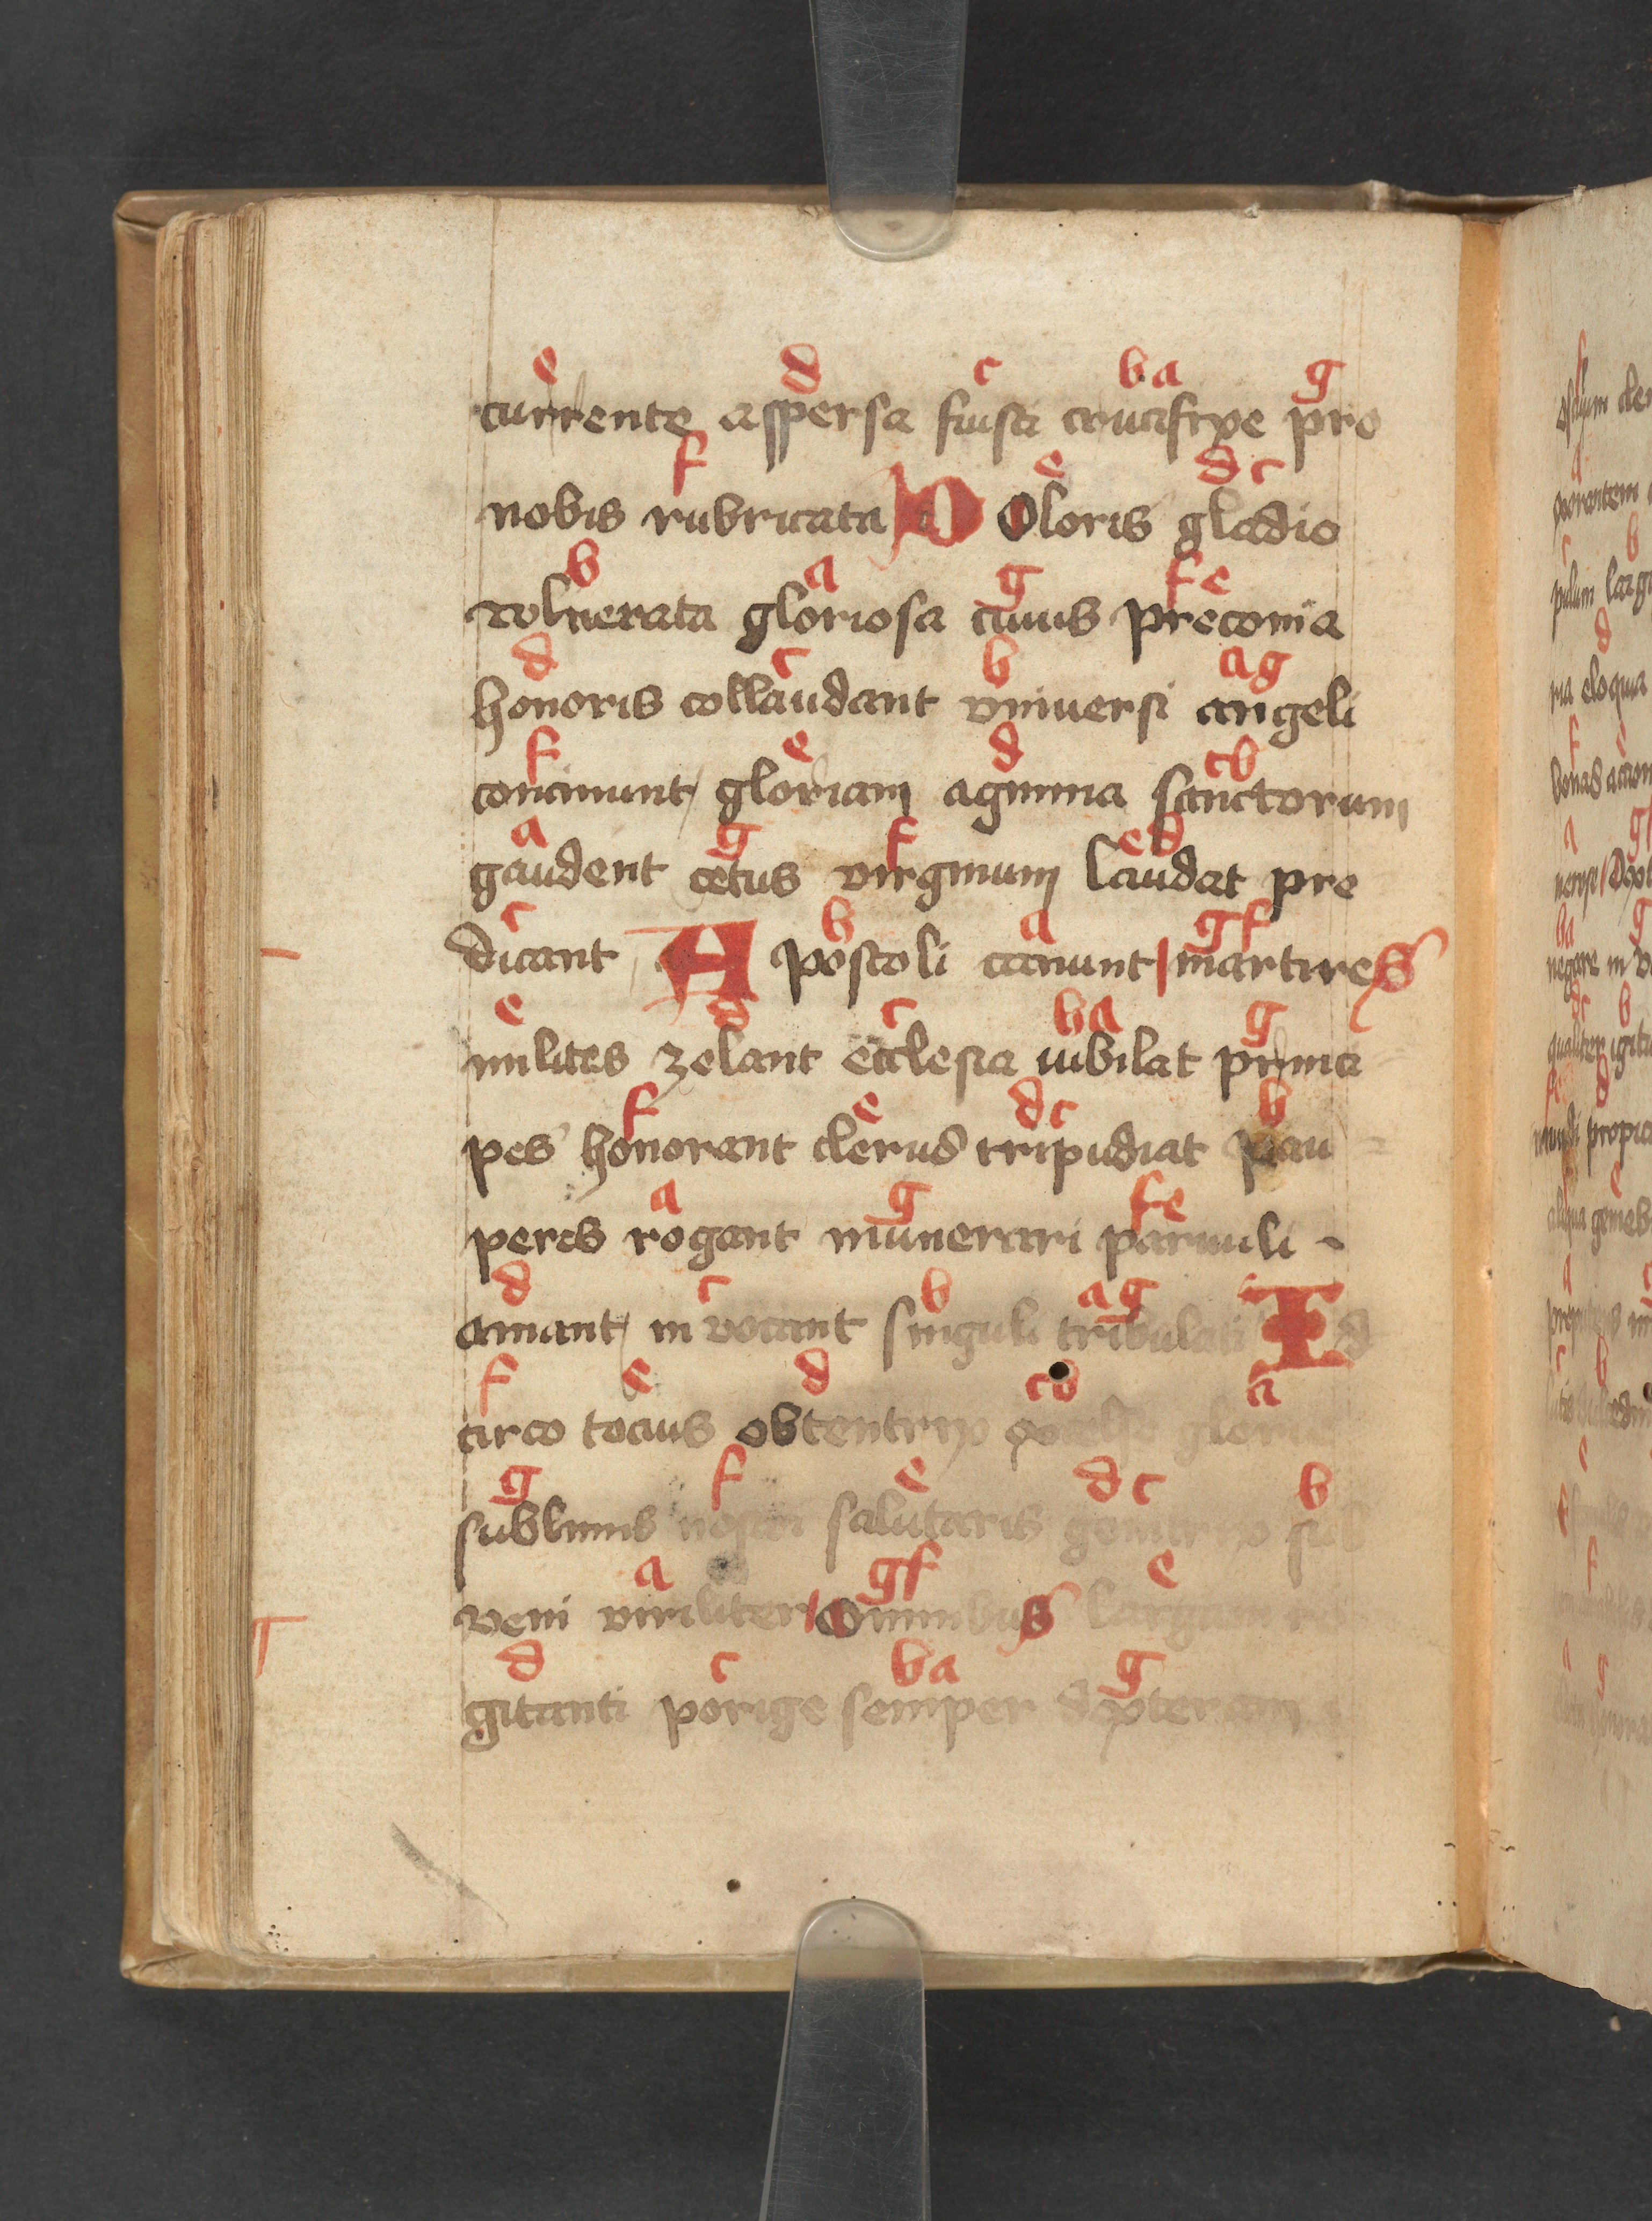 e d c b a g
currente aspersa fuisti crucifixe pro
f e d c
nobis rubricata D Oloris gladio
b a g f e
volnerata gloriosa cuius preconia
d c b a g
honoris collaudant vniuersi angeli
f e d c b
concinunt / gloriam agmina sanctorum
a g f e d
gaudent cetus virginum laudat pre
c b a g f
dicant A postoli canunt martires
e d c b a g
milites zelant ecclesia iubilat princi
f e d c b
pes honorant clerus tripudiat pau
a g f e
peres rogant munerari paruuli
d c b a g
amant / in vocant singuli tribulati Id
f e d c b a
circo tocius obtentrix glorie
g f e d c b
sublimis nostri salutaris genitrix sub
a g f e
veni viriliter omnibus
d c b a g
gitanti porige semper dexteram